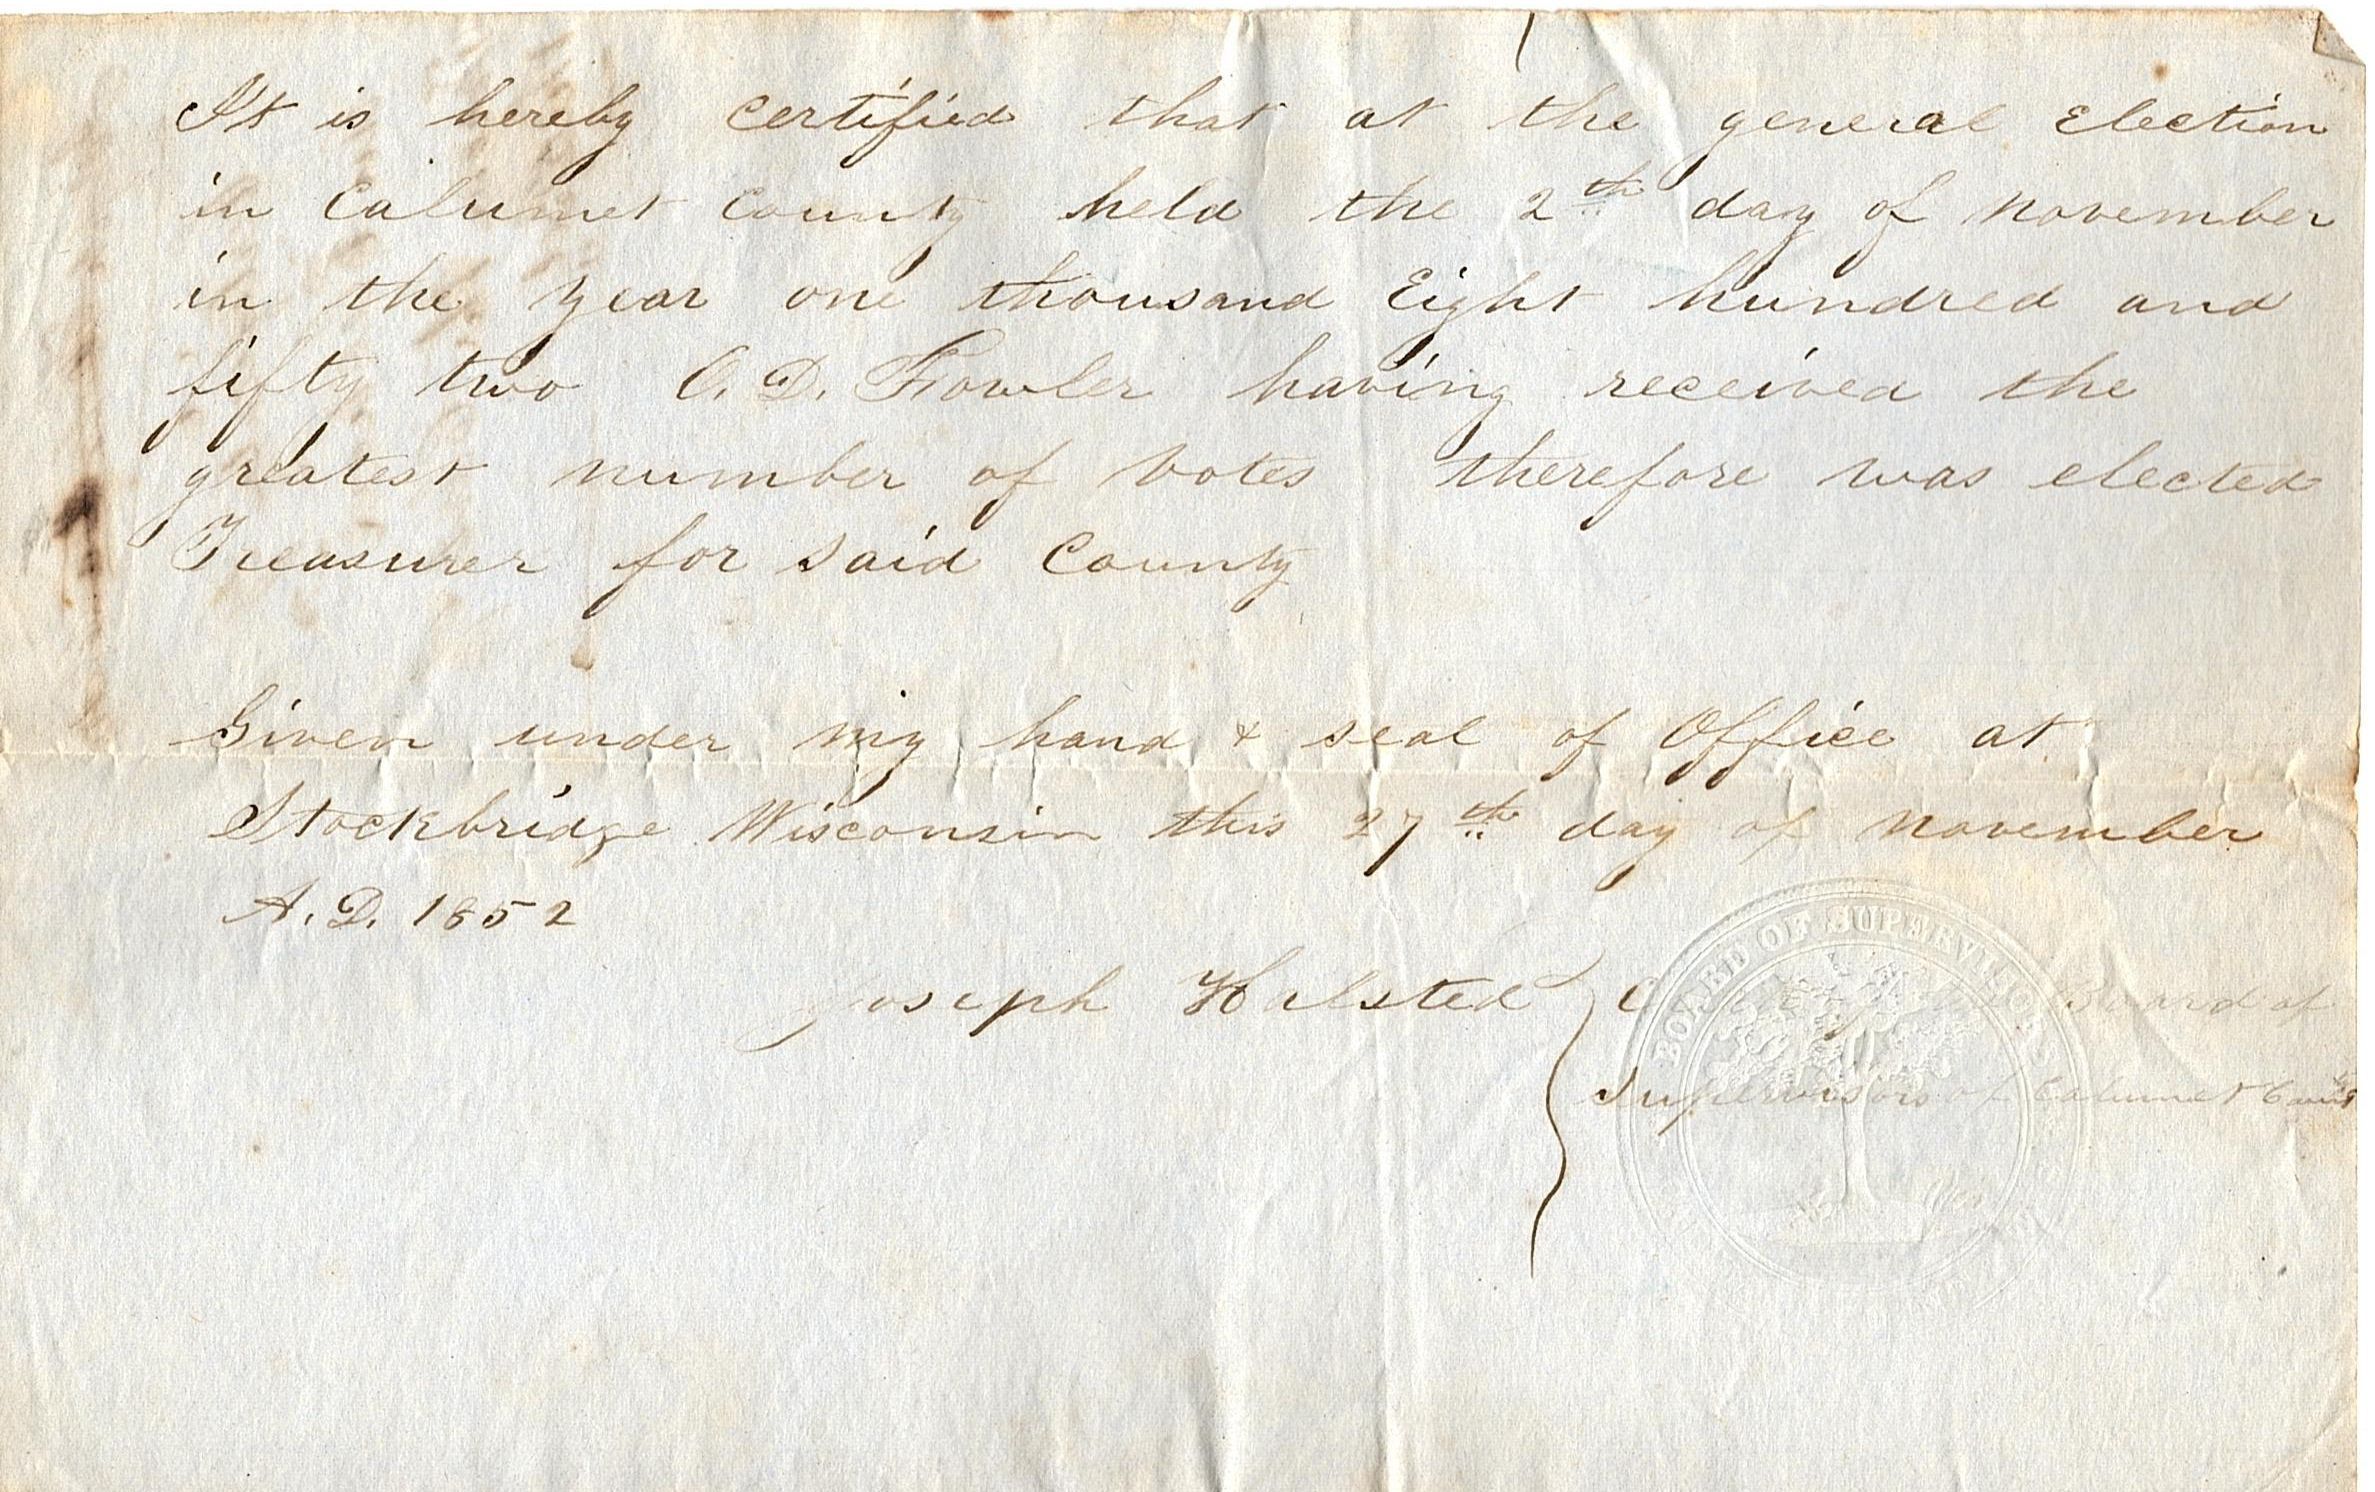 It is hereby certified that at the general Election
in Calumet County held the 2th day of November
in the year one thousand Eight hundred and
fifty two O. D. Fowler having received the
greatest number of Votes therefore was elected
Treasurer for said County
Given under my hand & seal of Office at
Stockbridge Wisconsin this 27th day of November
A. D. 1852
Joseph Halsted
Board of
Supervisors of Calumet County
BOARD OF SUPERVISORS